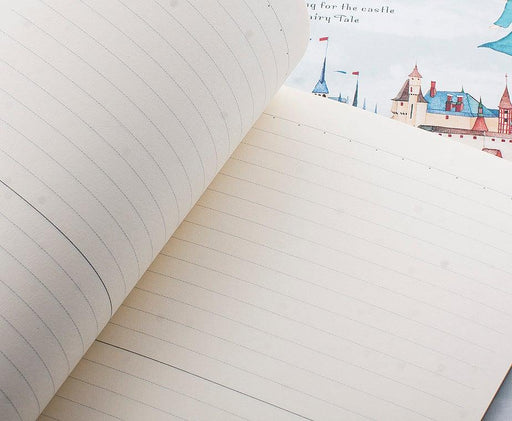 for the castle
Tale